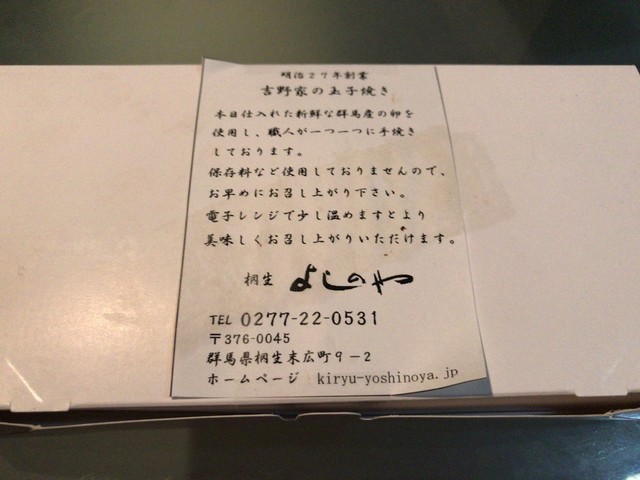 明治27年創業
吉野家の玉子焼き
本日仕入れた新鮮な群馬産の卵を
使用し、職人が一つ一つに手焼き
しております。
保存料など使用しておりませんので、
お早めにお召し上がり下さい。
電子レンジで少し温めますとより
美味しくお召し上がりいただけます。
桐生 よしのや
TEL 0277-22-0531
〒376-0045
群馬県桐生末広町9-2
ホームページ kiryu-yoshinoya.jp